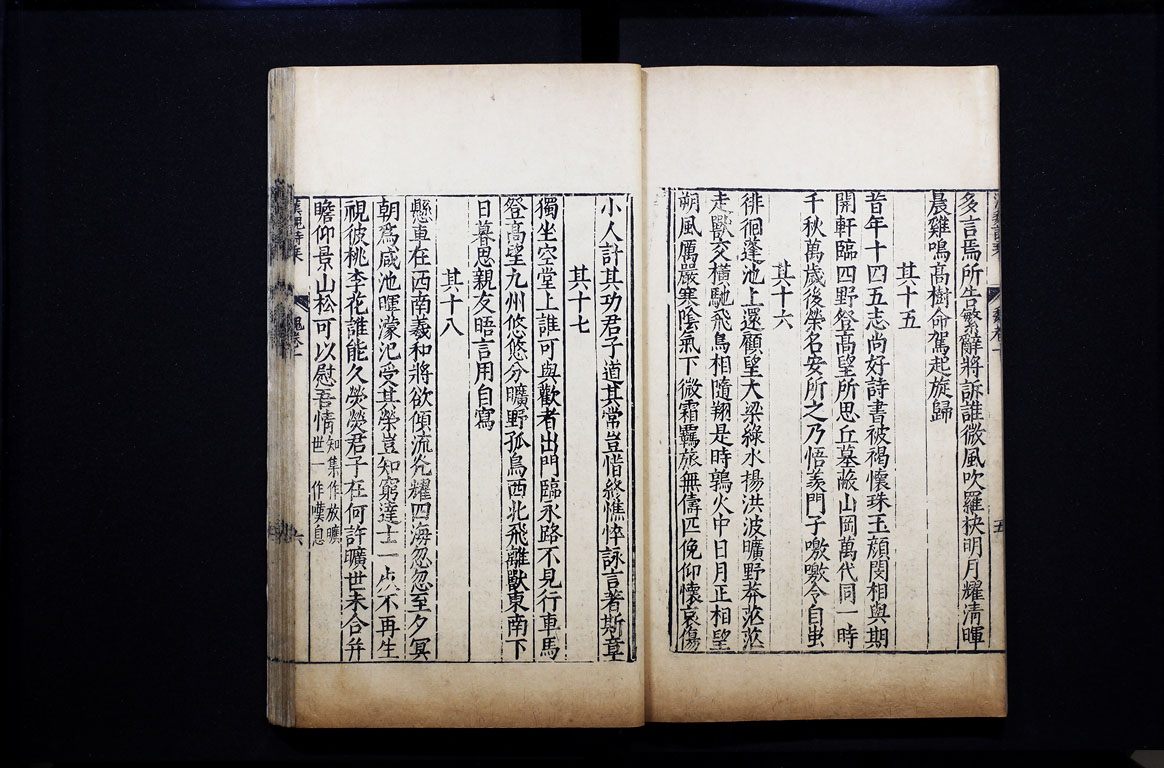 多言焉所告繁辭將訴誰微風吹羅袂明月耀清暉
晨雞鳴高樹命駕起旋歸
其十五
昔年十四五志尚好詩書被褐懷珠玉顏閔相與期
開軒臨四野登高望所思丘墓蔽山岡萬代同一時
千秋萬歲後榮名安所之乃悟羨門子噭噭令自蚩
其十六
徘徊蓬池上還顧望大梁綠水揚洪波曠野莽茫茫
走獸交橫馳飛鳥相隨翔是時鶉火中日月正相望
朔風厲嚴寒陰氣下微霜羈旅無儔匹俛仰懷哀傷
五
小人計其功君子道其常豈惜終憔悴詠言著斯章
其十七
獨坐空堂上誰可與歡者出門臨永路不見行車馬
登高望九州悠悠分曠野孤鳥西北飛離獸東南下
日暮思親友晤言用自寫
其十八
懸車在西南羲和將欲傾流光耀四海忽忽至夕冥
朝為咸池暉濛汜受其榮豈知窮達士一死不再生
視彼桃李花誰能久熒熒君子在何許曠世未合并
瞻仰景山松可以慰吾情
知集作放曠
世一作嘆息
魏卷一
六